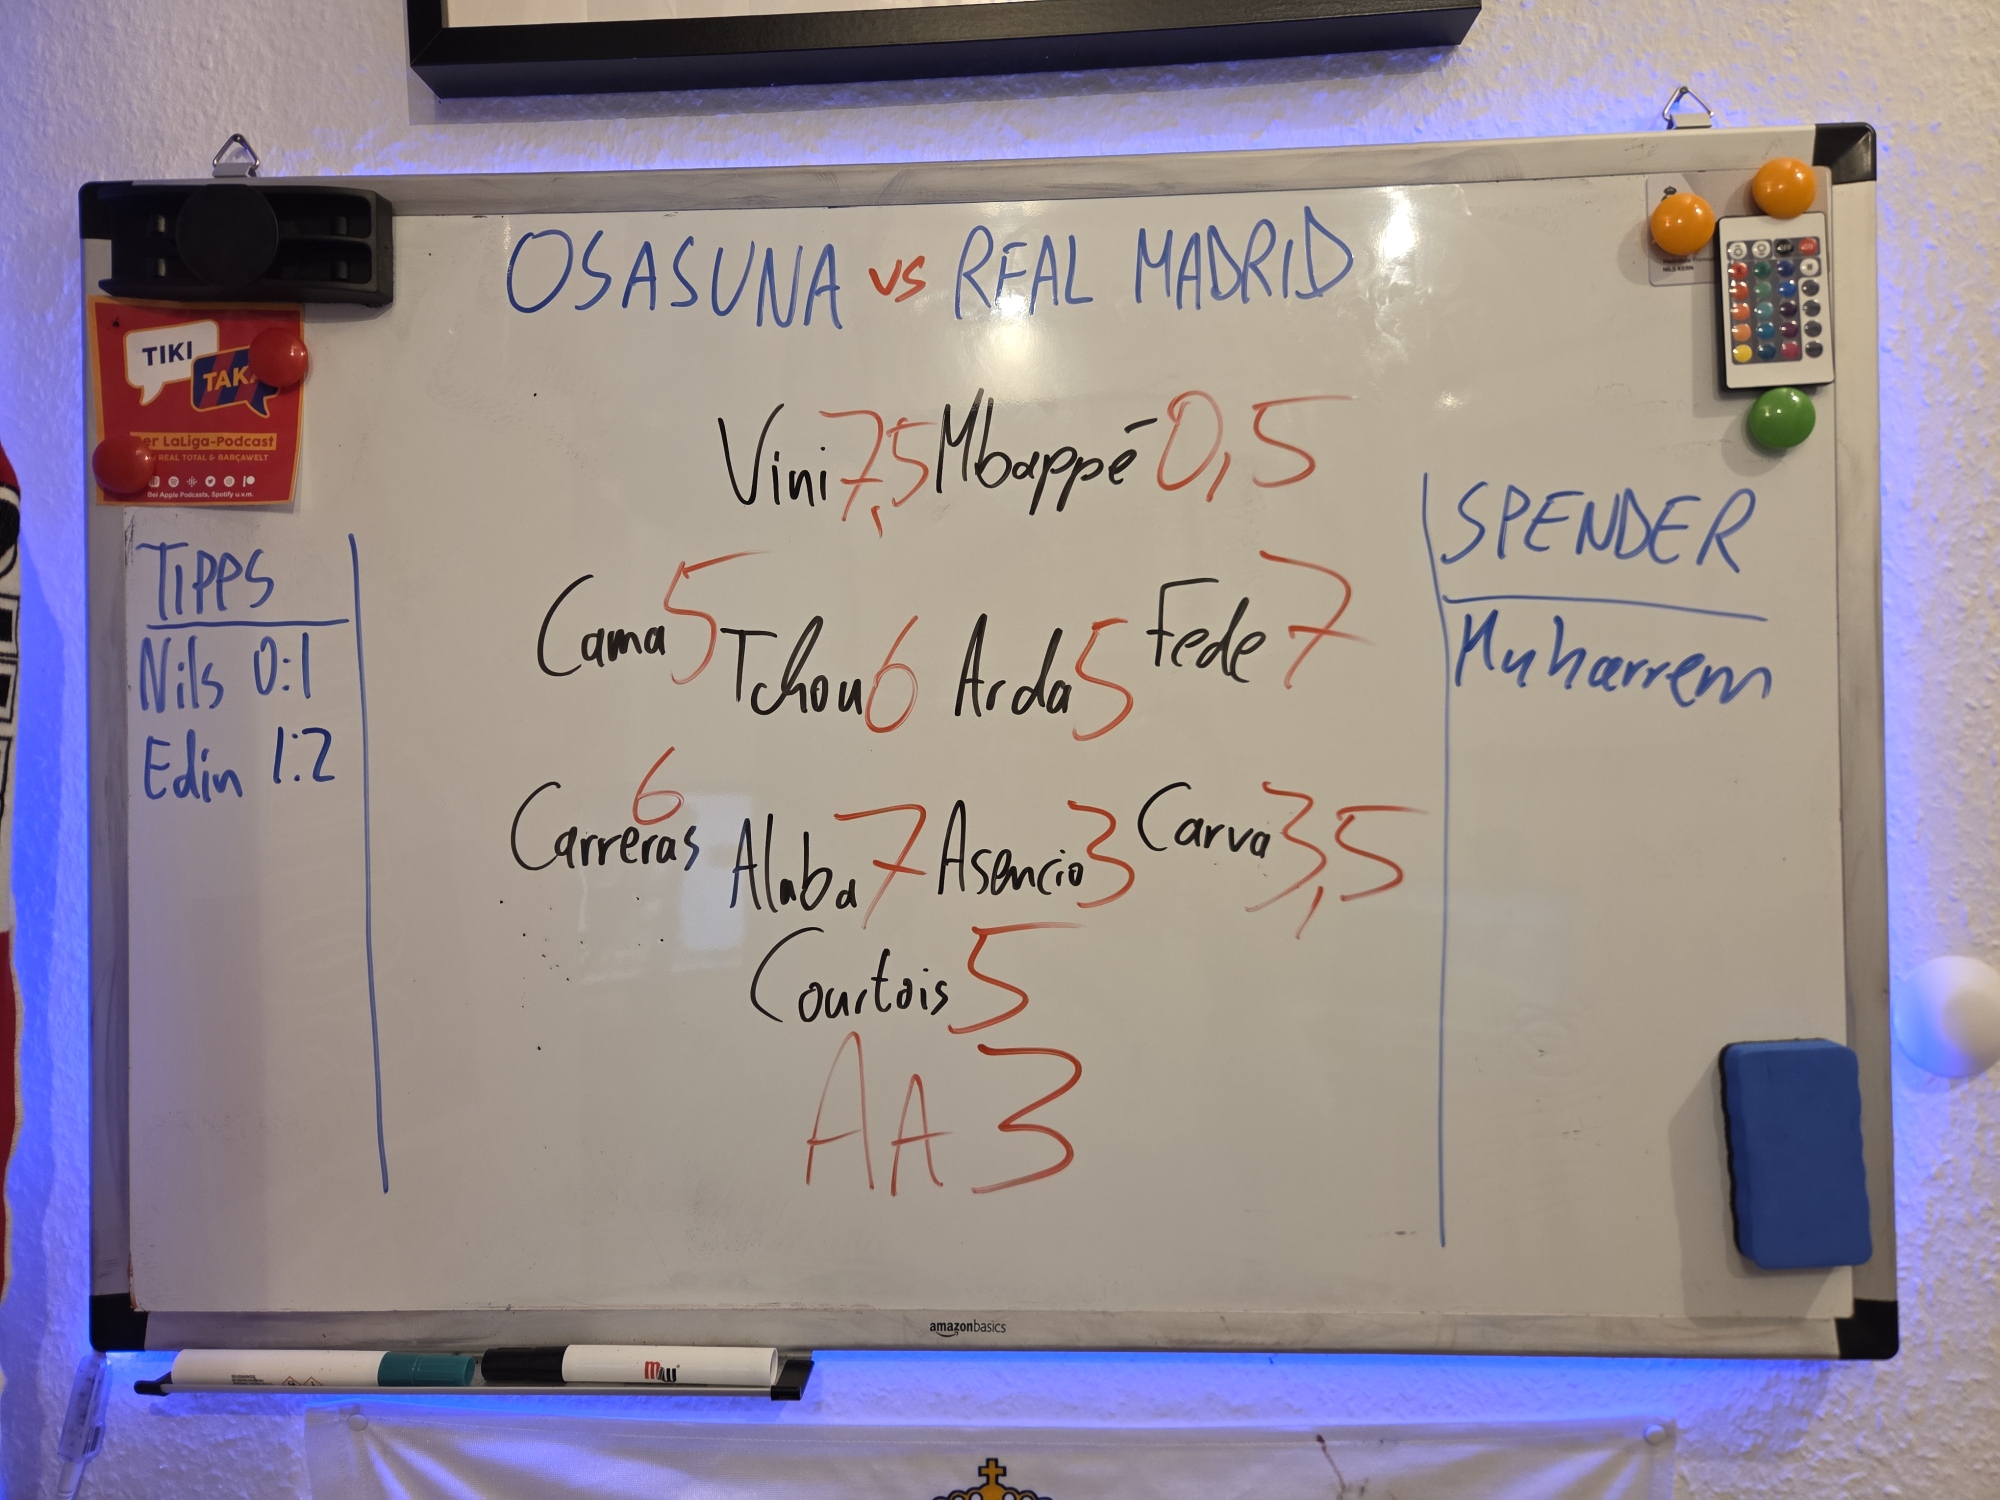 OSASUNA vs REAL MADRID
TIKI
TAKA
Der LaLiga-Podcast
REAL TOTAL & BARÇAWELT
Bei Apple Podcasts, Spotify u.v.m.
NILS KERN
Vini 7,5 Mbappé 0,5
Cama 5 Tchou 6 Arda 5 Fede 7
Carreras 6 Alaba 7 Asencio 3 Carva 3,5
Courtois 5
AA 3
TIPPS
Nils 0:1
Edin 1:2
SPENDER
Muharrem
amazonbasics
MAUL